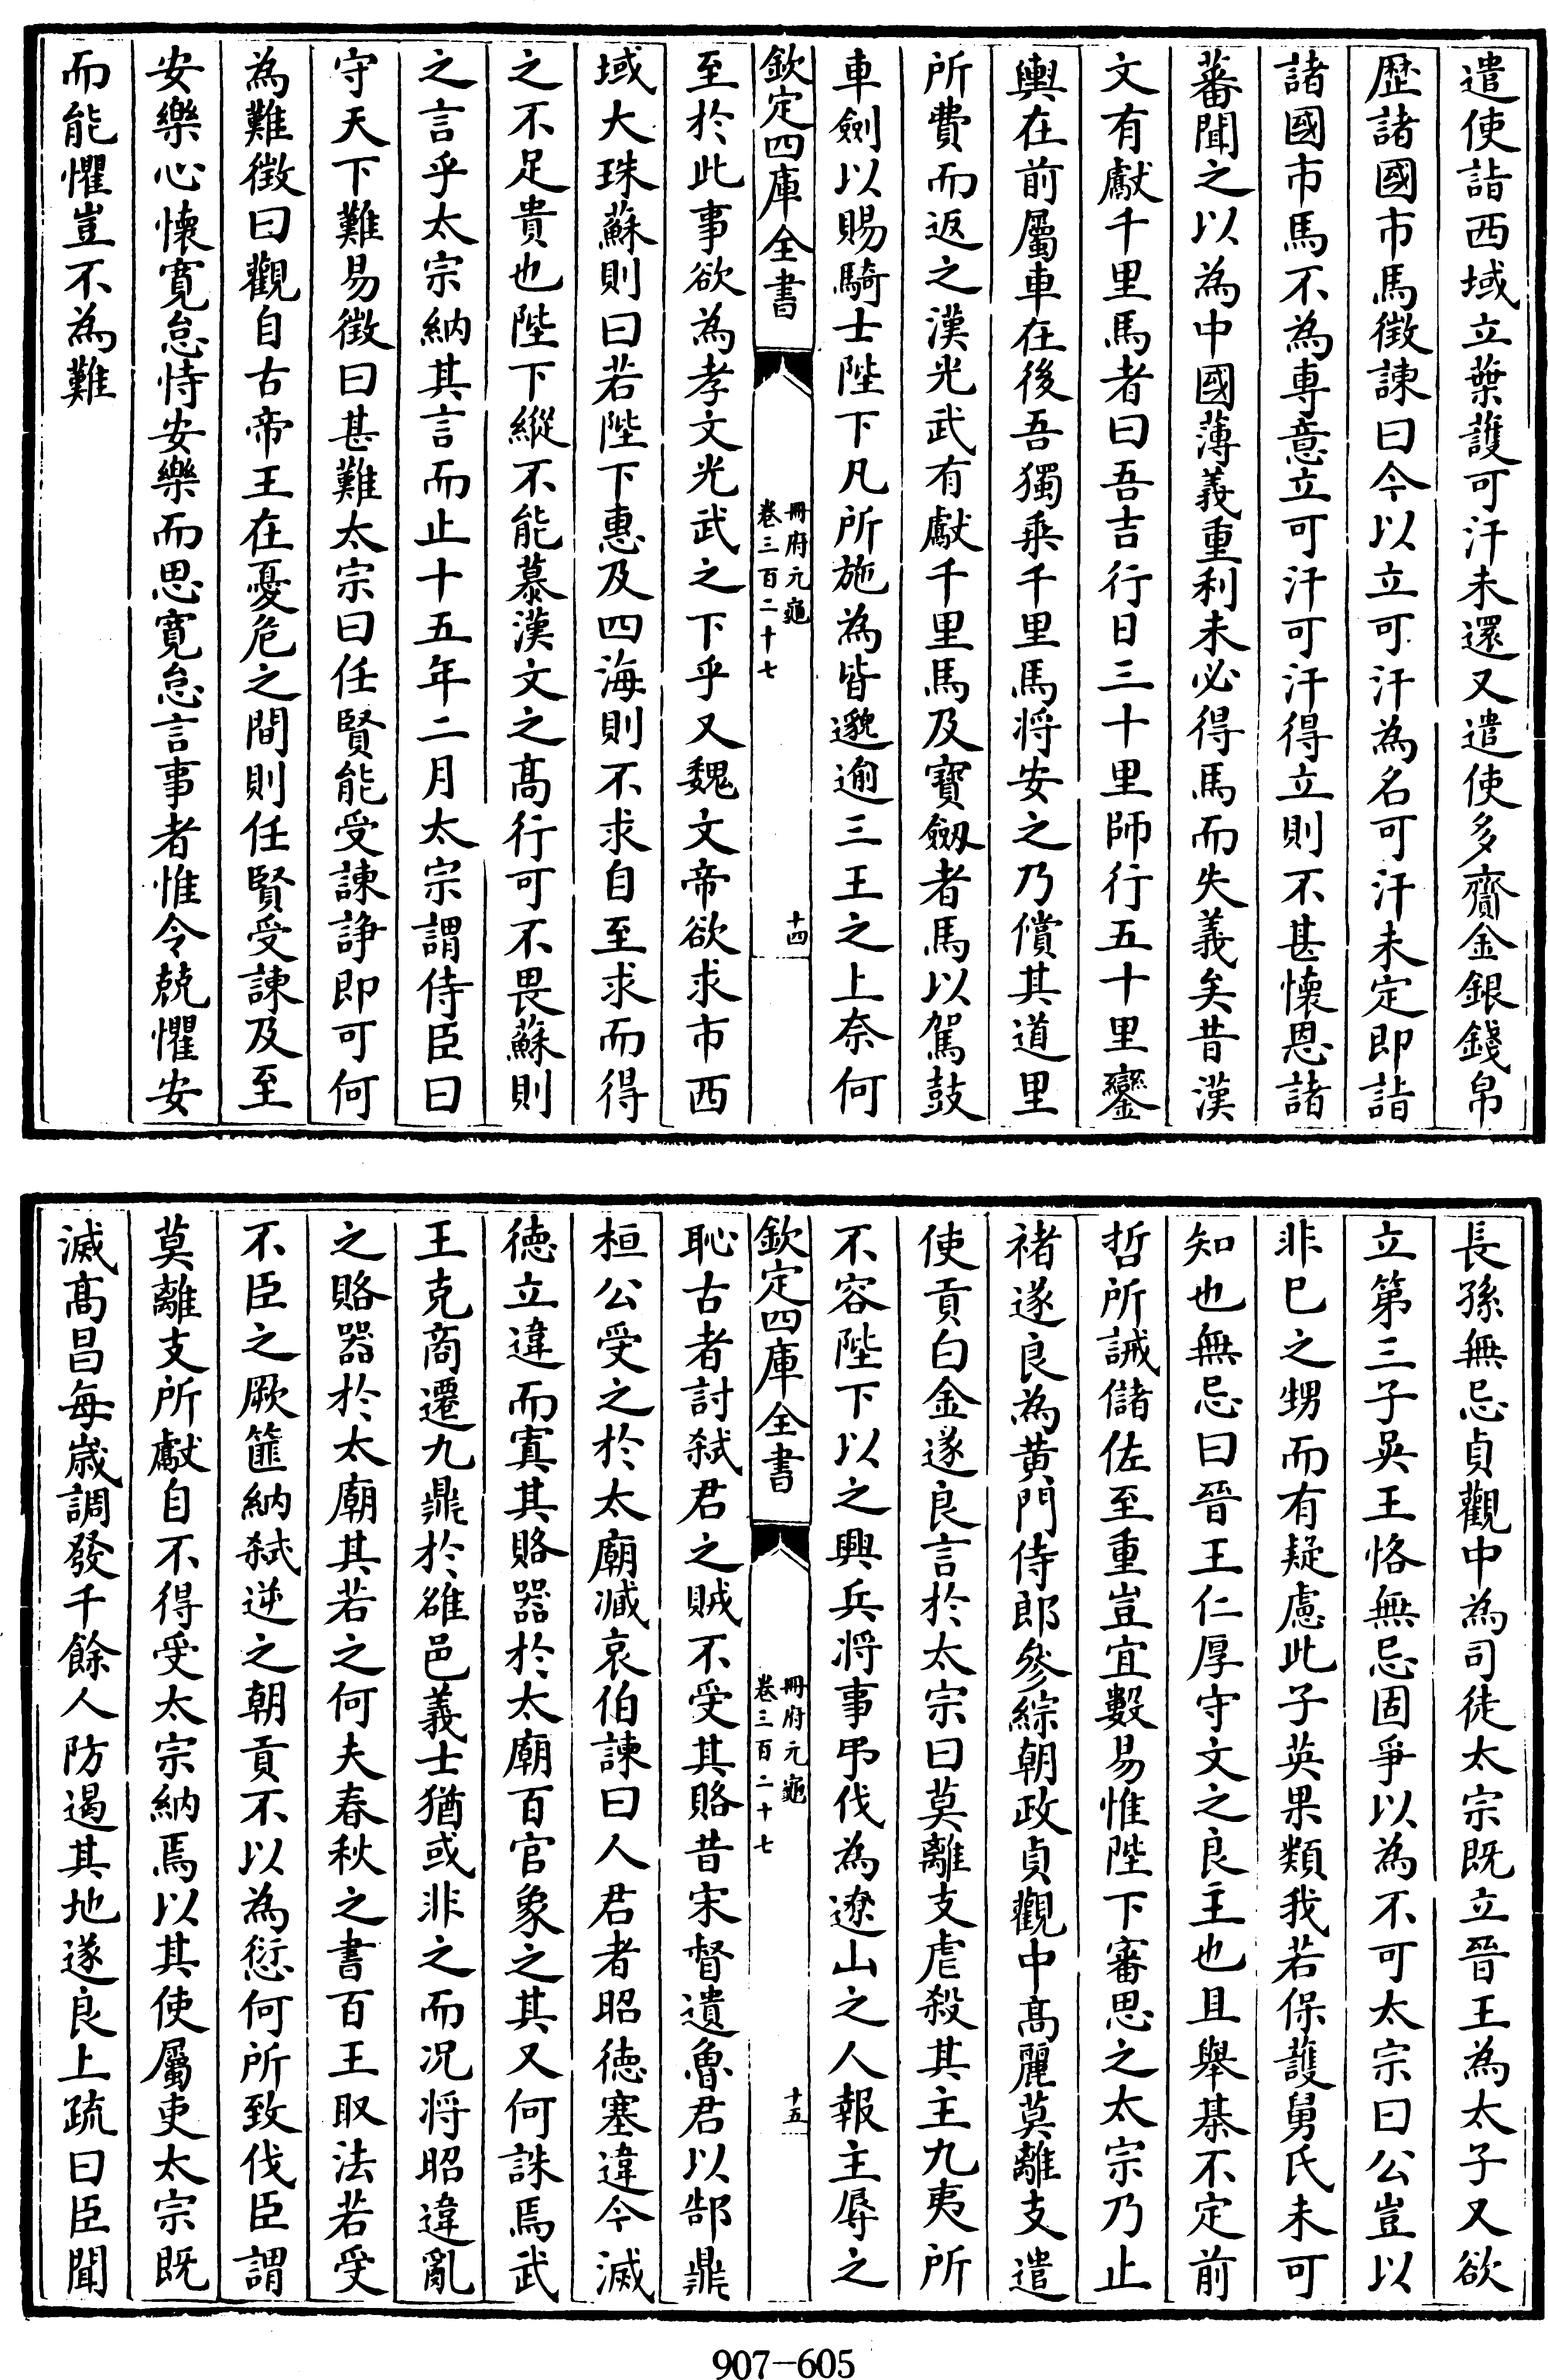 遣使詣西域立葉護可汗未還又遣使多齎金銀錢帛
歴諸國市馬徴諫曰今以立可汗為名可汗未定即詣
諸國市馬不為専意立可汗可汗得立則不甚懐恩諸
蕃聞之以為中國薄義重利未必得馬而失義矣昔漢
文有獻千里馬者曰吾吉行日三十里師行五十里鑾
輿在前屬車在後吾獨乗千里馬将安之乃償其道里
所費而返之漢光武有獻千里馬及寳劔者馬以駕鼓
車劍以賜騎士陛下凡所施為皆邈逾三王之上奈何
欽定四庫全書
冊府元龜
卷三百二十七
十四
至於此事欲為孝文光武之下乎又魏文帝欲求市西
域大珠蘇則曰若陛下惠及四海則不求自至求而得
之不足貴也陛下縱不能慕漢文之髙行可不畏蘇則
之言乎太宗納其言而止十五年二月太宗謂侍臣曰
守天下難易徴曰甚難太宗曰任賢能受諫諍即可何
為難徴曰觀自古帝王在憂危之間則任賢受諫及至
安樂心懐寛怠恃安樂而思寛怠言事者惟令兢懼安
而能懼豈不為難
長孫無忌貞觀中為司徒太宗既立晉王為太子又欲
立第三子吳王恪無忌固爭以為不可太宗曰公豈以
非已之甥而有疑慮此子英果類我若保護舅氏未可
知也無忌曰晉王仁厚守文之良主也且舉棊不定前
哲所誡儲佐至重豈宜數易惟陛下審思之太宗乃止
禇遂良為黄門侍郎參綜朝政貞觀中髙麗莫離支遣
使貢白金遂良言於太宗曰莫離支虐殺其主九夷所
不容陛下以之興兵将事弔伐為遼山之人報主辱之
欽定四庫全書
冊府元龜
卷三百二十七
十五
恥古者討弑君之賊不受其賂昔宋督遺魯君以郜鼎
桓公受之於太廟臧哀伯諫曰人君者昭徳塞違今滅
徳立違而寘其賂器於太廟百官象之其又何誅焉武
王克商遷九鼎於雒邑義士猶或非之而况将昭違亂
之賂器於太廟其若之何夫春秋之書百王取法若受
不臣之厥篚納弑逆之朝貢不以為愆何所致伐臣謂
莫離支所獻自不得受太宗納焉以其使屬吏太宗既
滅髙昌每歳調發千餘人防遏其地遂良上疏曰臣聞
907-605